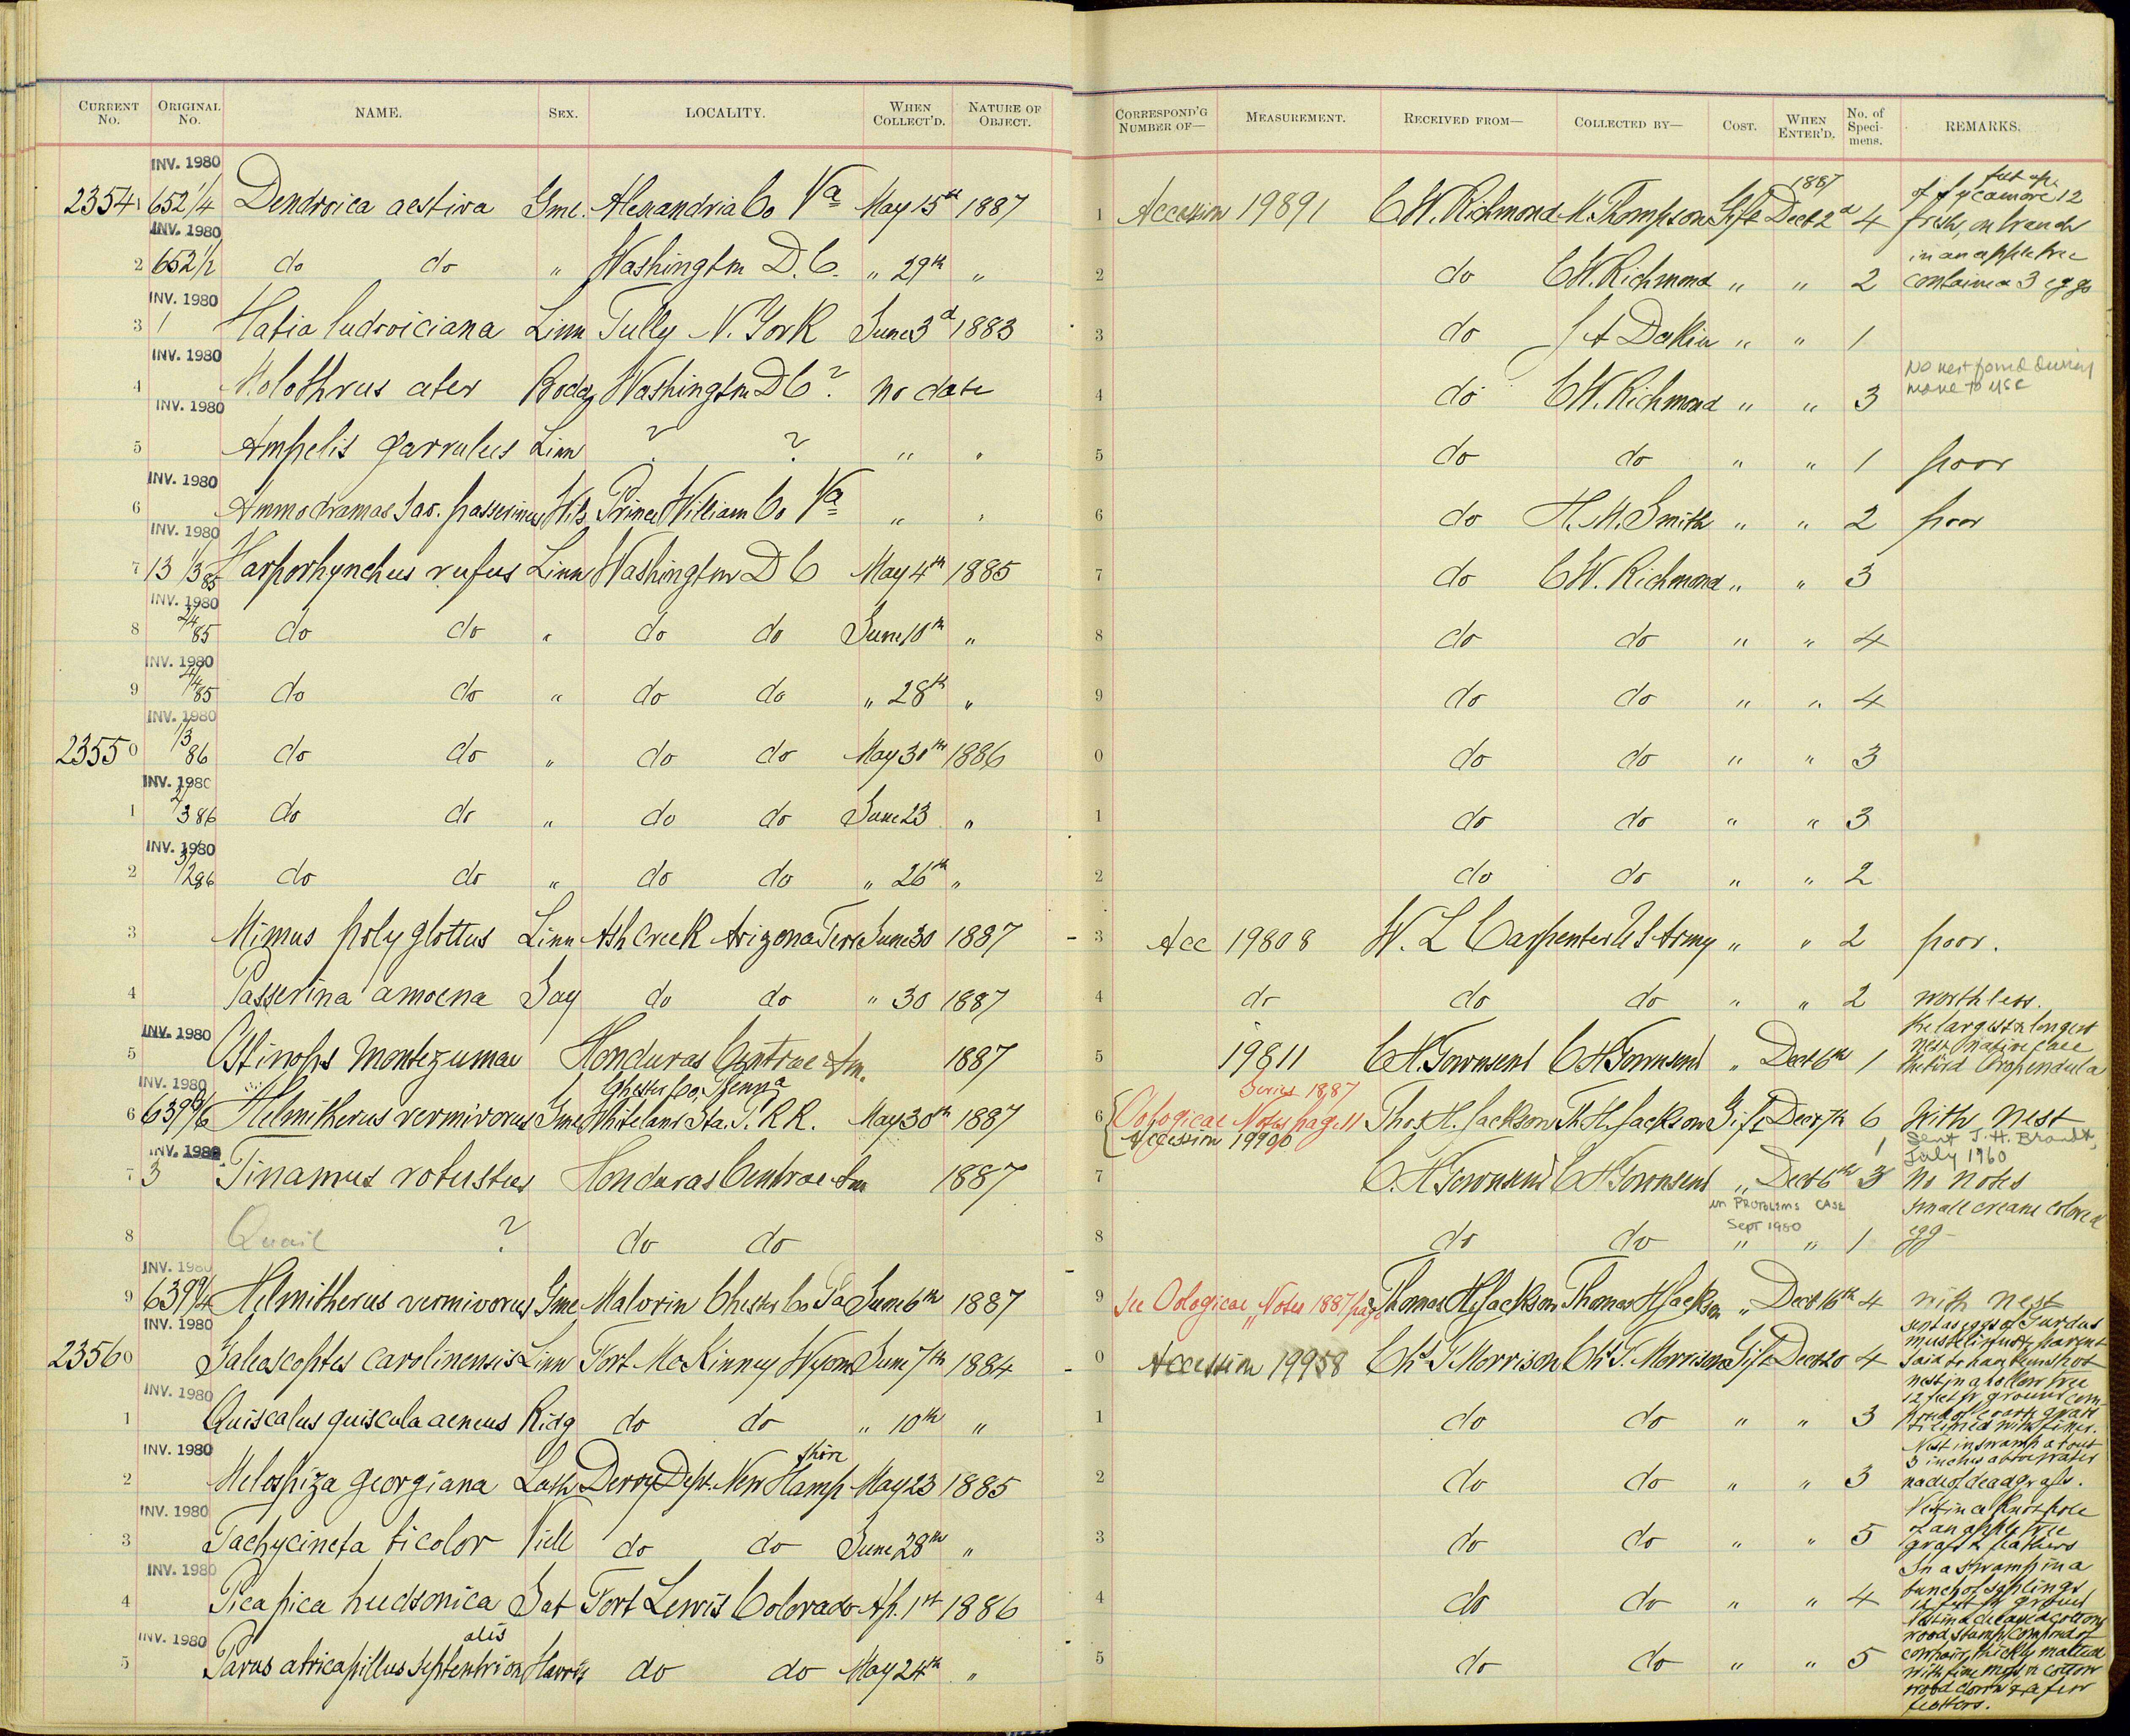 CURRENT No. ORIGINAL No. NAME. SEX. LOCALITY. WHEN COLLECT'D. NATURE OF OBJECT.
INV. 1980
23541 652 1/4 Dendroica aestiva Gml. Alexandria Co Va May 15th 1887
INV. 1980
2 652 1/2 do do " Washington D.C. " 29th "
INV. 1980
3 1 Habia ludoviciana Linn Tully N. York June 3d 1883
INV. 1980
4 Molothrus ater Bodd Washington D C ? no date
INV. 1980
5 Ampelis garrulus Linn ? ? " "
INV. 1980
6 Ammodramas Sav. passerinus Wils Prince William Co Va " "
INV. 1980
7 13 1/3 85 Harporhynchus rufus Linn Washington D C May 4th 1885
INV. 1980
8 2/4 85 do do " do do June 10th "
INV. 1980
9 4/4 85 do do " do do " 28th "
INV. 1980
23550 1/3 86 do do " do do May 30th 1886
INV. 1980
1 2/3 86 do do " do do June 23 "
INV. 1980
2 3/2 86 do do " do do " 26th "
3 Mimus polyglottus Linn Ash Creek Arizona Terr June 30 1887
4 Passerina amoena Say do do " 30 1887
INV. 1980
5 Ostinops Montezumae Honduras Central Am. 1887
INV. 1980
Chester Co, Penna
6 639 9/6 Helmitherus vermivorus Gme Whiteland Sta. P. R R. May 30th 1887
INV. 1980
7 3 Tinamus robustus Honduras Central Am 1887
8 Quail ? do do
INV. 1980
9 639 9/4 Helmitherus vermivorus Gme Malvrin Chester Co Pa June 6th 1887
INV. 1980
23560 Galeoscoptes carolinensis Linn Fort McKinney Wyom June 7th 1884
INV. 1980
1 Quiscalus quiscula aeneus Ridg do do " 10th "
INV. 1980
shire
2 Melospiza georgiana Lath Derry Dept. New Hamp May 23 1885
INV. 1980
3 Tachycineta bicolor Viell do do June 28th "
INV. 1980
4 Pica pica hudsonica Sab Fort Lewis Colorado Ap. 1st 1886
INV. 1980
alis
5 Parus atricapillus septentrion Harris do do May 24th "
CORRESPOND'G NUMBER OF— MEASUREMENT. RECEIVED FROM— COLLECTED BY— COST. WHEN ENTER'D. No. of Speci-mens. REMARKS.
1887 feet up
of Sycamore 12
1 Accession 19891 C W. Richmond M. Thompson Gift Dect 2d 4 fresh, on branch
in an apple tree
2 do C W. Richmond " " 2 contained 3 eggs
3 do J A Dakin " " 1
No nest found during
move to MSC
4 do C W. Richmond " " 3
5 do do " " 1 poor
6 do H. M. Smith " " 2 poor
7 do C W. Richmond " " 3
8 do do " " 4
9 do do " " 4
0 do do " " 3
1 do do " " 3
2 do do " " 2
3 Acc 19808 W. L Carpenter U S Army " " 2 poor.
4 do do do " " 2 worthless.
the largest & longest
nest native call
5 19811 C H. Townsend C H Townsend " Dect 6th 1 the bird Oropendula
Series 1887
6 Oological Notes page 11 Thos H. Jackson Th H. Jackson Gift Dect 7th 6 With nest
Accession 19990
1 Sent J. H. Brandt,
July 1960
7 C. H Townsend C H Townsend " Dect 6th 3 No notes
in PROBLEMS CASE
Sept 1980
small cream colored
8 do do " " 1 egg
9 See Oological Notes 1887 page Thomas H Jackson Thomas H Jackson " Dect 16th 4 with nest
sent as eggs of Turdus
mustelinus, parent
0 Accession 19958 Chs. F Morrison Chs. F. Morrison Gift Dect 20 4 said to have been shot
nest in a hollow tree
12 feet fr ground com-
1 do do " " 3 posed of coarse grass
& lined with finer.
Nest in swamp about
3 inches above water
2 do do " " 3 made of dead grass.
Nest in a knot hole
of an apple tree
3 do do " " 5 grass & feathers
In a swamp in a
bunch of saplings
4 do do " " 4 12 feet fr ground
Nest in a decayed cotton
wood stump composed of
5 do do " " 5 cowhair, thickly matted
with fine moss, cotton
wood down & a few
feathers.